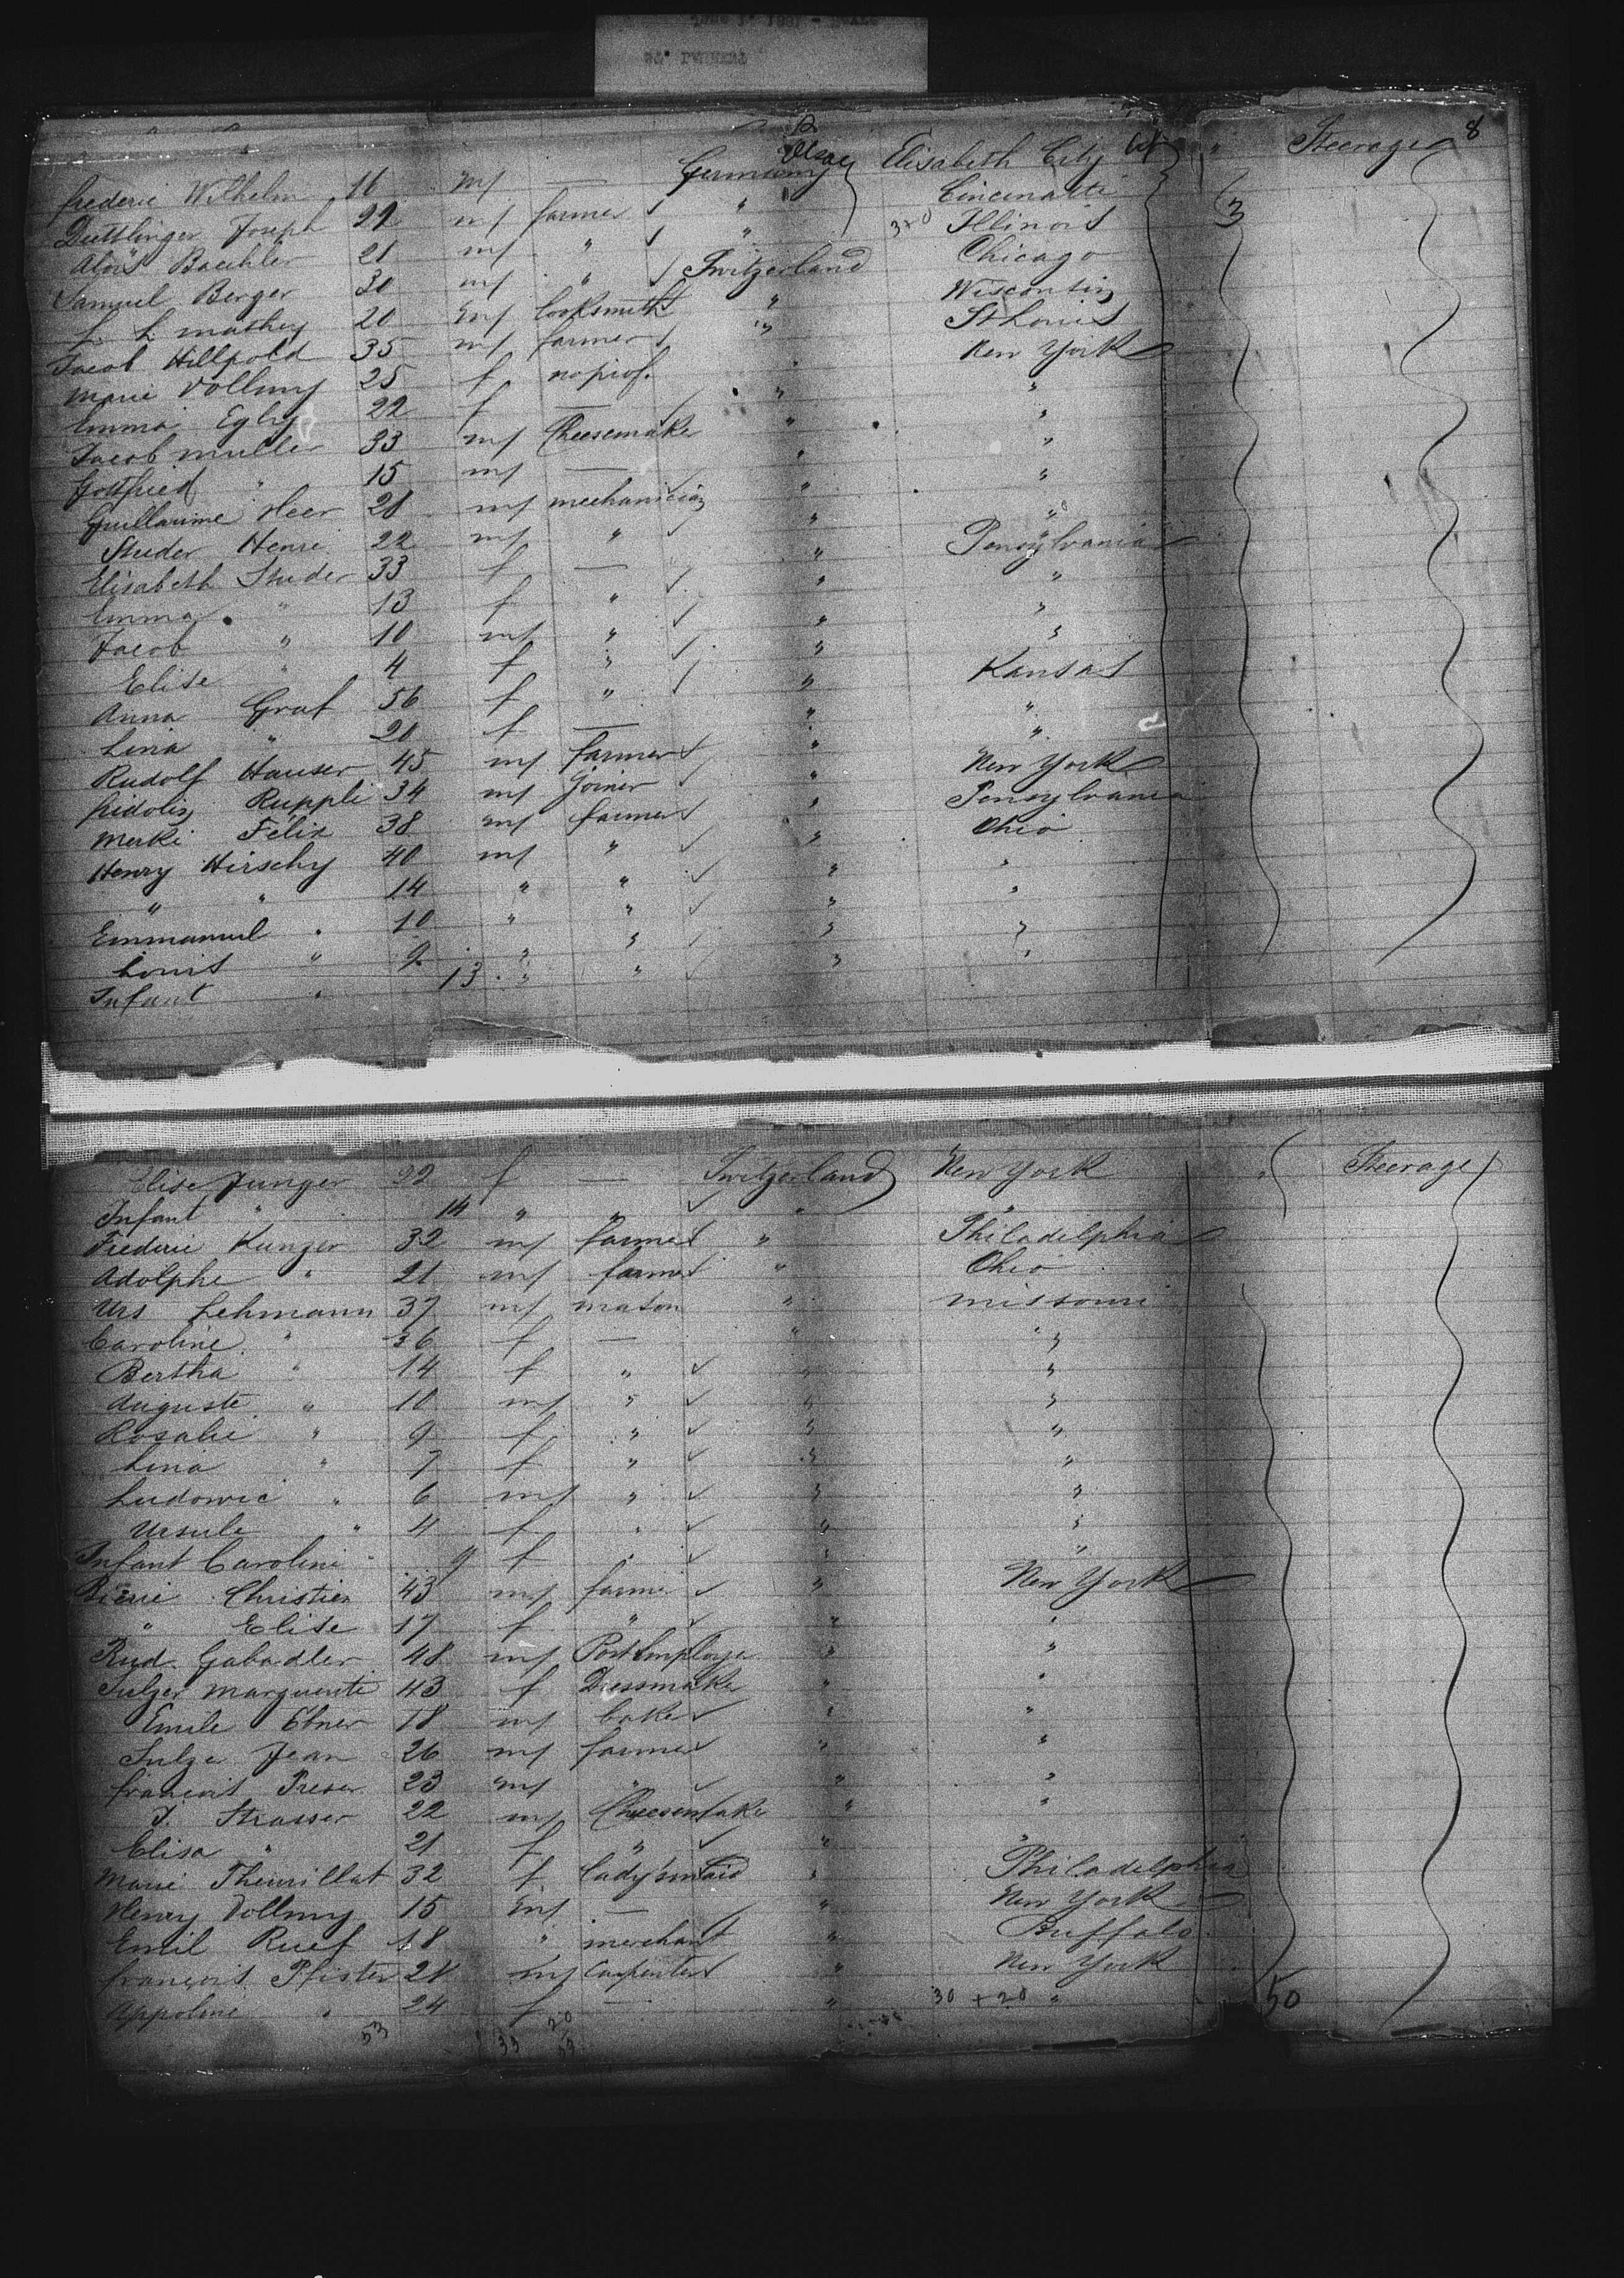 8
Frederic Wilhelm 16 m — Germany Elisabeth City Steerage
Duttlinger Joseph 22 m farmer " Cincinatti 3
Aloïs Baechler 21 m " " 3+0 Illinois
Samuel Berger 30 m " Switzerland Chicago
L. L. mathey 20 m locksmith " Wisconsin
Jacob Hillpold 35 m farmer " St Louis
Marie Vollmy 25 f no prof. " New York
Emma Egly 22 f — " "
Jacob muller 33 m Cheesemaker " "
Gottfried " 15 m — " "
Guillaume Heer 28 m mechanician " "
Studer Henri 22 m " " "
Elisabeth Studer 33 f — " Pensylvania
Emma " 13 f " " "
Jacob " 10 m " " "
Elise " 4 f " " "
Anna Graf 56 f " " Kansas
Lina " 20 f — " "
Rudolf Hauser 45 m farmer " "
Fidolin Ruppli 34 m joiner " New York
Merki Felix 38 m farmer " Pensylvania
Henry Hirschy 40 m " " Ohio
" " 14 " " " "
Emmanuel " 10 " " " "
Louis " 9 " " " "
Infant " 13 " " " "
Elise Junger 22 f — Switzerland New York Steerage
Infant " 14 " " " "
Frederic Kunger 32 m farmer " Philadelphia
Adolphe " 21 m farmer " Ohio
Urs Lehmann 37 m mason " missouri
Caroline " 36 f — " "
Bertha " 14 f " " "
Auguste " 10 m " " "
Rosalie " 9 f " " "
Lina " 7 f " " "
Ludowic " 6 m " " "
Ursule " 4 f " " "
Infant Caroline " 9 f " " "
Christien 43 m farmer " New York
" Elise 17 f " " "
Rud. Gabadler 48 m Post Employe " "
Sulzer Marguerite 43 f Dressmaker " "
Emile Ebner 18 m baker " "
Sulzer Jean 26 m farmer " "
François 23 m " " "
J. Strasser 22 m Cheesemaker " "
Elisa " 21 f " " "
Marie Theurillat 32 f lady's maid " Philadelphia
Henry Vollmy 15 m — " New York
Emil Ruef 18 " merchant " Buffalo
François Pfister 28 m Carpenter " New York
Appoline " 24 f — " 30 + 20 " 50
53 33 20